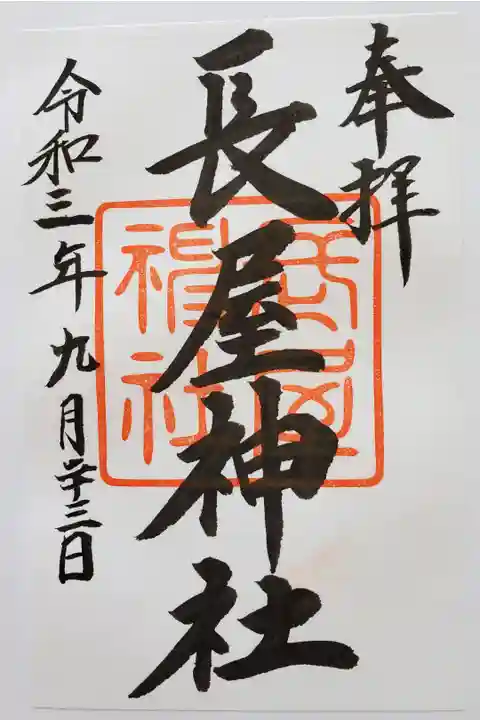 奉拝
長屋神社
長屋神社
令和三年九月二十三日